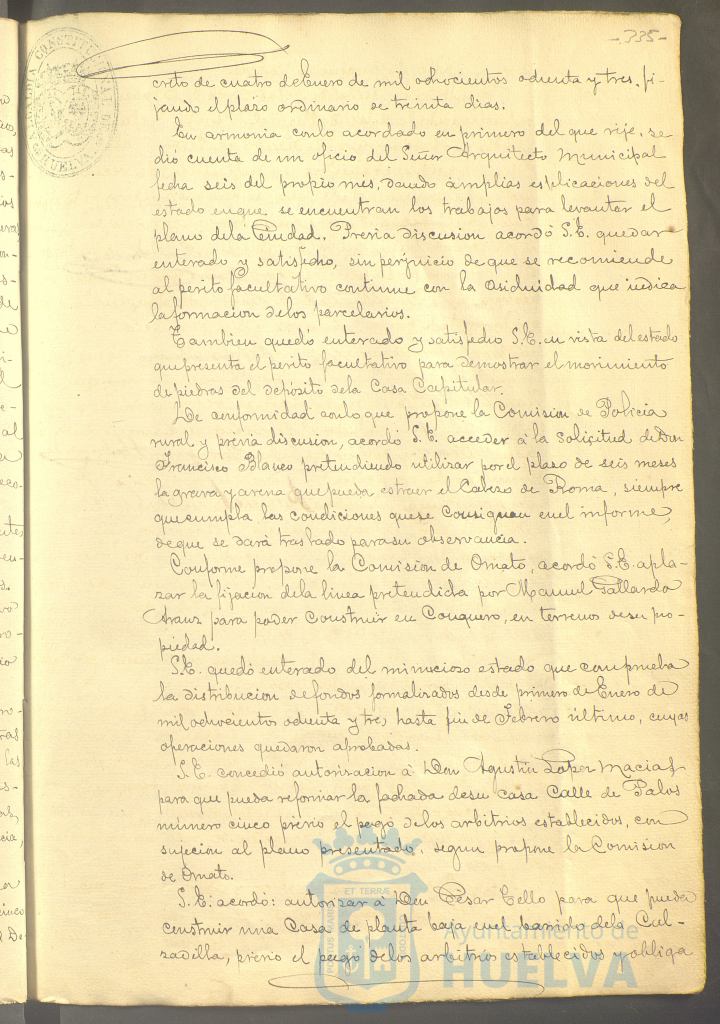 -335-
ALCALDIA CONSTITUCIONAL DE HUELVA
creto de cuatro de Enero de mil ochocientos ochenta y tres, fi-
jando el plazo ordinario de treinta dias.
En armonia con lo acordado en primero del que rije, se
dió cuenta de un oficio del Señor Arquitecto Municipal
fecha seis del propio mes, dando ámplias esplicaciones del
estado en que se encuentran los trabajos para levantar el
plano de la Ciudad. Previa discusion acordó S.E. quedar
enterado y satisfecho, sin perjuicio de que se recomiende
al perito facultativo continue con la asiduidad que indica
la formacion de los parcelarios.
Tambien quedó enterado y satisfecho S.E. en vista del estado
que presenta el perito facultativo para demostrar el movimiento
de piedras del depósito de la Casa Capitular.
De conformidad con lo que propone la Comision de Policia
rural y previa discusion, acordó S.E. acceder á la solicitud de Don
Francisco Blanco pretendiendo utilizar por el plazo de seis meses
la grava y arena que pueda estraer el Cabezo de Roma, siempre
que cumpla las condiciones que se consignan en el informe,
de que se dará traslado para su observancia.
Conforme propone la Comision de Ornato, acordó S.E. apla-
zar la fijacion de la linea pretendida por Manuel Gallardo
Aranz para poder construir en Conquero, en terrenos de su pro-
piedad.
S.E. quedó enterado del minucioso estado que comprueba
la distribucion de fondos formalizados desde primero de Enero de
mil ochocientos ochenta y tres, hasta fin de Febrero último, cuyas
operaciones quedaron aprobadas.
S.E. concedió autorizacion á Don Agustin Lopez Macias,
para que pueda reformar la fachada de su casa Calle de Palos
número cinco previo el pago de los arbitrios establecidos, con
sujecion al plano presentado, segun propone la Comision
de Ornato.
S.E. acordó: autorizar á Don César Tello para que pueda
construir una Casa de planta baja en el barrido de la Cal-
zadilla, previo el pago de los arbitrios establecidos y obliga
PORTUS MARIS ET TERRÆ CUSTODIA
Ayuntamiento de
HUELVA